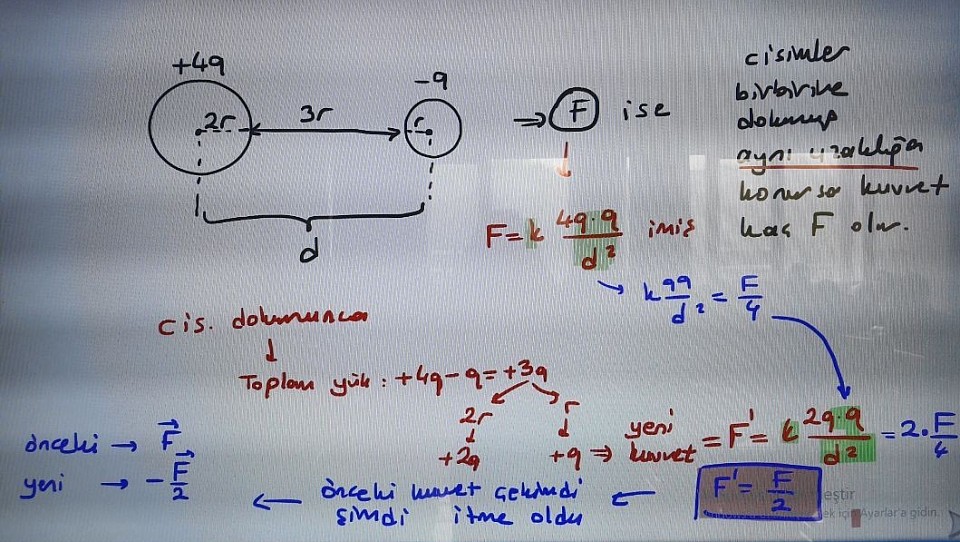 +4q
-q
2r
3r
r
d
⇒ F ise
cisimler
birbirine
dokunup
aynı uzaklığa
konursa kuvvet
kaç F olur.
F = k 4q·q / d² imiş
k qq / d² = F/4
cis. dokununca
Toplam yük : +4q - q = +3q
2r
r
+2q
+q ⇒ yeni kuvvet = F' = k 2q·q / d² = 2·F/4
önceki → F⃗
yeni → - F⃗/2
F' = F/2
← önceki kuvvet çekimdi ←
şimdi itme oldu
eştir
ek için Ayarlar'a gidin.